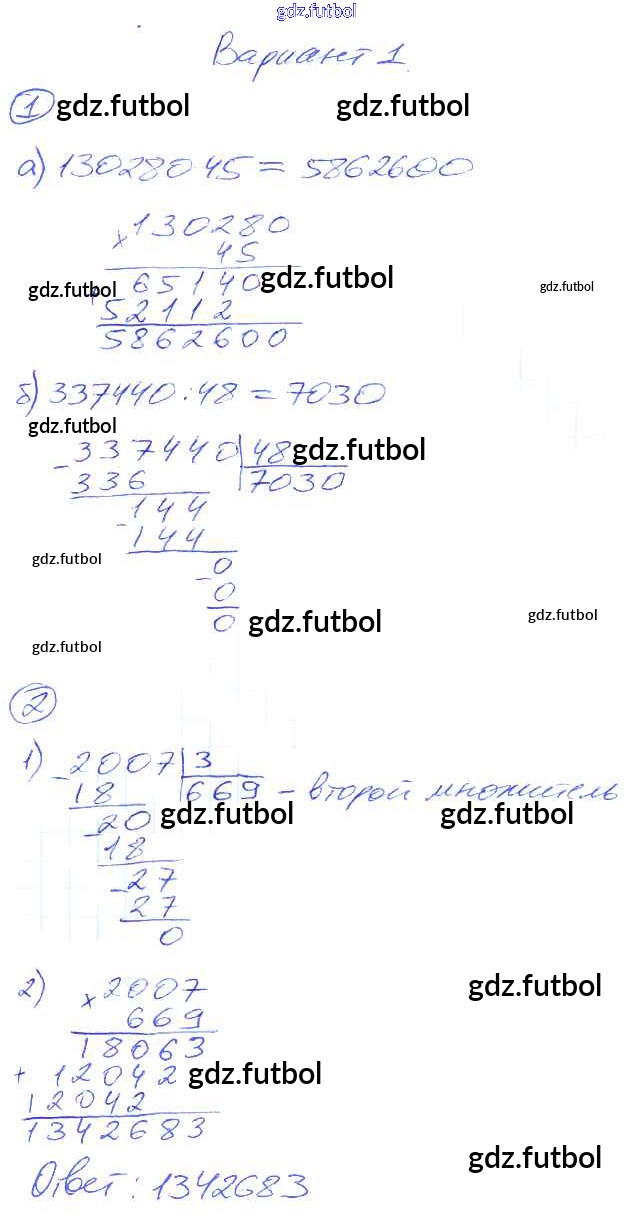 gdz.futbol
Вариант 1
1 gdz.futbol gdz.futbol
а) 130280 45 = 5862600
× 130280
45
gdz.futbol + 65140 gdz.futbol gdz.futbol
52112
5862600
б) 337440 : 48 = 7030
gdz.futbol
- 337440 | 48 gdz.futbol
336 7030
- 144
144
gdz.futbol - 0
0
0 gdz.futbol gdz.futbol
gdz.futbol
2
1) - 2007 | 3
18 669 – второй множитель
- 20 gdz.futbol gdz.futbol
18
- 27
27
0
2) × 2007 gdz.futbol
669
18063
+ 12042 gdz.futbol
12042
1342683
gdz.futbol
Ответ: 1342683